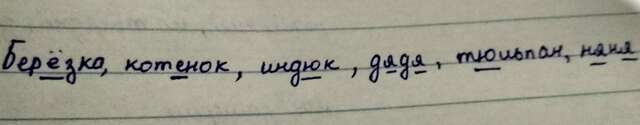 Берёзка, котенок, индюк, дядя, тюльпан, няня